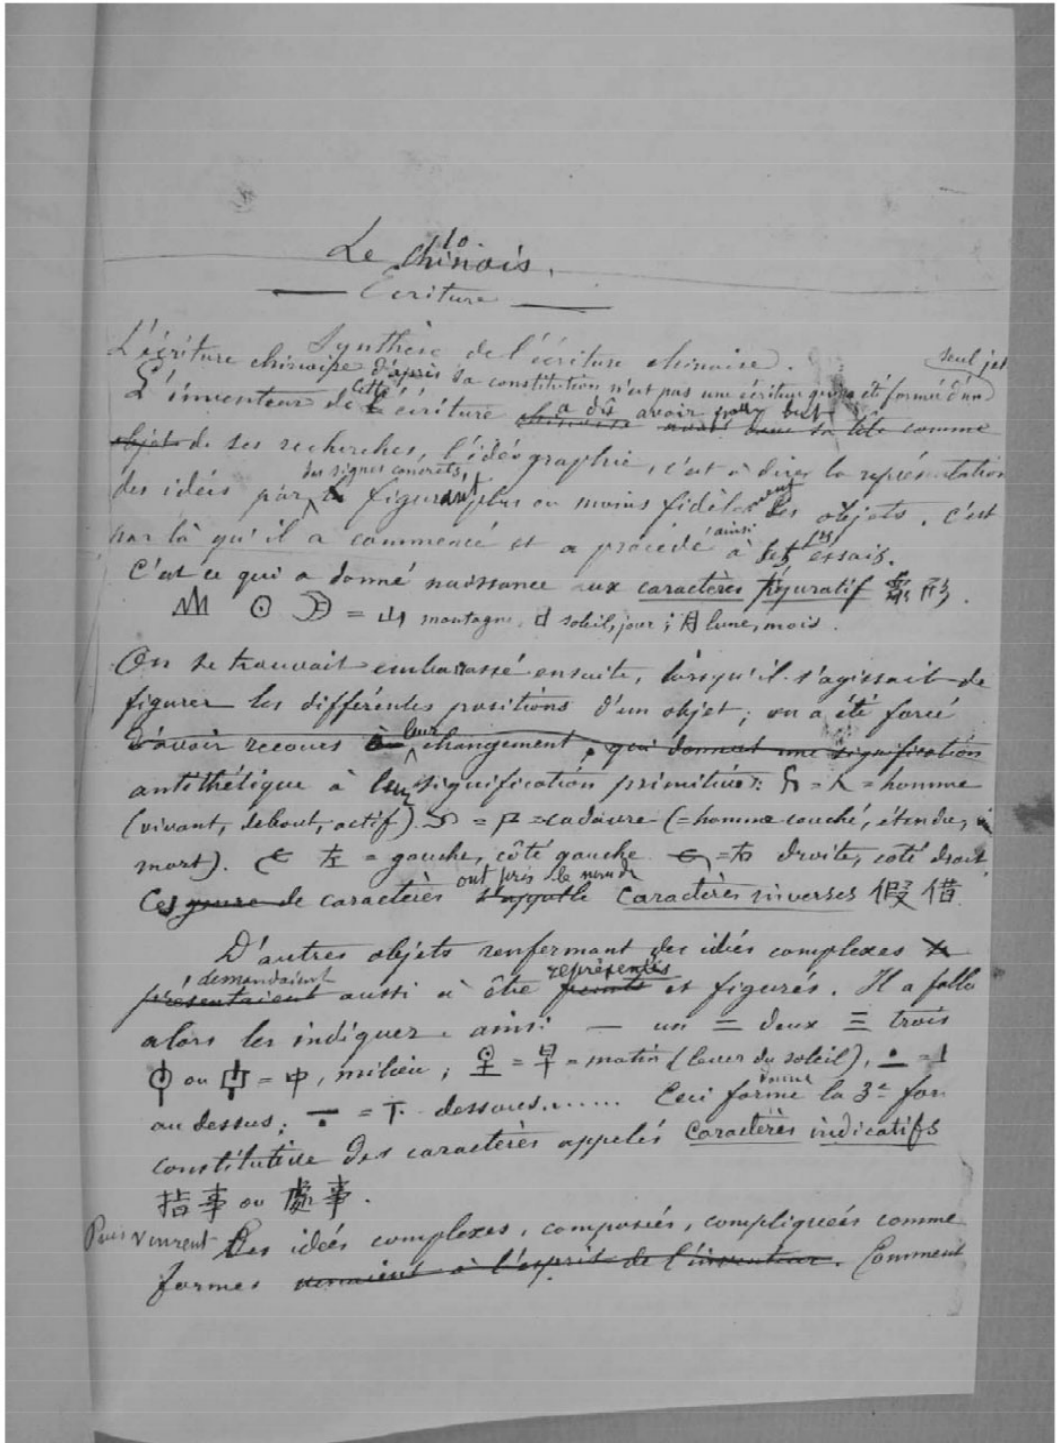 10.
Le chinois.
Ecriture
Synthèse de l'écriture chinoise.
L'écriture chinoise d'après sa constitution n'est pas une écriture qui a été formée d'un seul jet
L'inventeur de cette écriture chinoise a dû avoir pour but avait dans sa tête comme
objet de ses recherches, l'idéographie, c'est à dire, la représentation
des idées par des signes concrets, figurant plus ou moins fidèlement les objets. C'est
par là qu'il a commencé et a procédé ainsi à ses essais.
C'est ce qui a donné naissance aux caractères figuratifs 形.
= 山 montagne, 日 soleil, jour; 月 lune, mois.
On se trouvait embarrassé ensuite, lorsqu'il s'agissait de
figurer les différentes positions d'un objet; on a été forcé
d'avoir recours à leur changement, qui donnait une signification
antithétique à leur signification primitive: = 人 = homme
(vivant, debout, actif). = 尸 = cadavre (= homme couché, étendu,
mort). 左 = gauche, côté gauche = 右 droite, coté droit.
Ces genre de caractères ont pris le nom de s'appelle Caractères inverses 假借
D'autres objets renfermant des idées complexes
présentaient demandaient aussi à être peints représentés et figurés. Il a fallu
alors les indiquer. ainsi 一 un 二 deux 三 trois
ou = 中, milieu; = 早 = matin (lever du soleil), =
au dessus; = 下 dessous...... Ceci forme la 3e
constitutive des caractères appelés Caractères indicatifs
指事 ou 處事.
Puis vinrent Des idées complexes, composées, compliquées comme
formes venaient à l'esprit de l'inventeur. Comment